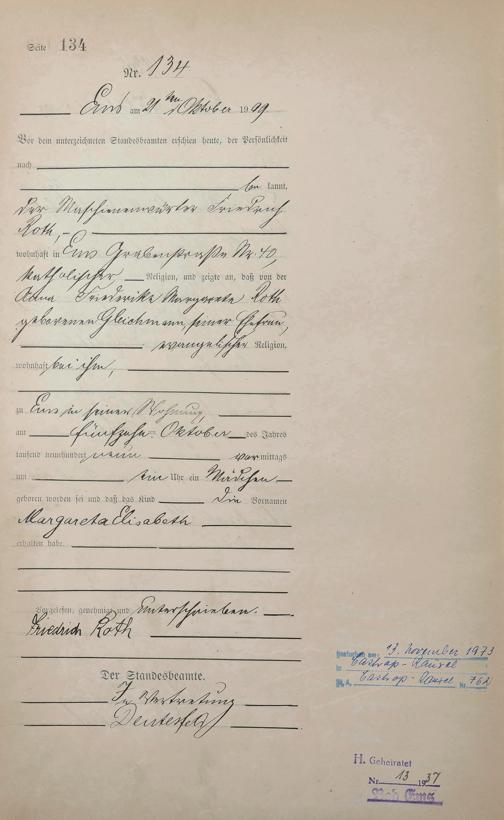 Seite 134
Nr. 134
Ems am 21ten Oktober 1909
Vor dem unterzeichneten Standesbeamten erschien heute, der Persönlichkeit
nach
bekannt,
der Maschinenwärter Friedrich
Roth,
wohnhaft in Ems Grabenstraße Nr. 40,
katholischer Religion, und zeigte an, daß von der
Anna Friederike Margarete Roth
geborenen Gleichmann, seiner Ehefrau,
evangelischer Religion,
wohnhaft bei ihm,
zu Ems in seiner Wohnung,
am fünfzehn Oktober des Jahres
tausend neunhundert neun vormittags
um ein Uhr ein Mädchen
geboren worden sei und daß das Kind die Vornamen
Margareta Elisabeth
erhalten habe.
Vorgelesen, genehmigt und unterschrieben.
Friedrich Roth
Der Standesbeamte.
In Vertretung
13. November 1973
in Castrop-Rauxel
St. A. Castrop-Rauxel Nr. 762
H. Geheiratet
Nr. 13 1937
Bad Ems